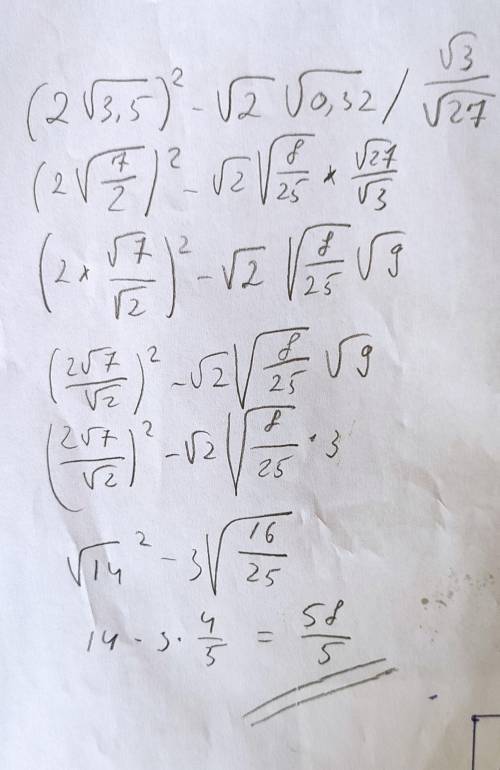 (2√3,5)² - √2 √0,32 / √3/√27
(2√7/2)² - √2 √8/25 × √27/√3
(2 × √7/√2)² - √2 √8/25 √9
(2√7/√2)² - √2 √8/25 √9
(2√7/√2)² - √2 √8/25 · 3
√14² - 3√16/25
14 - 3 · 4/5 = 58/5